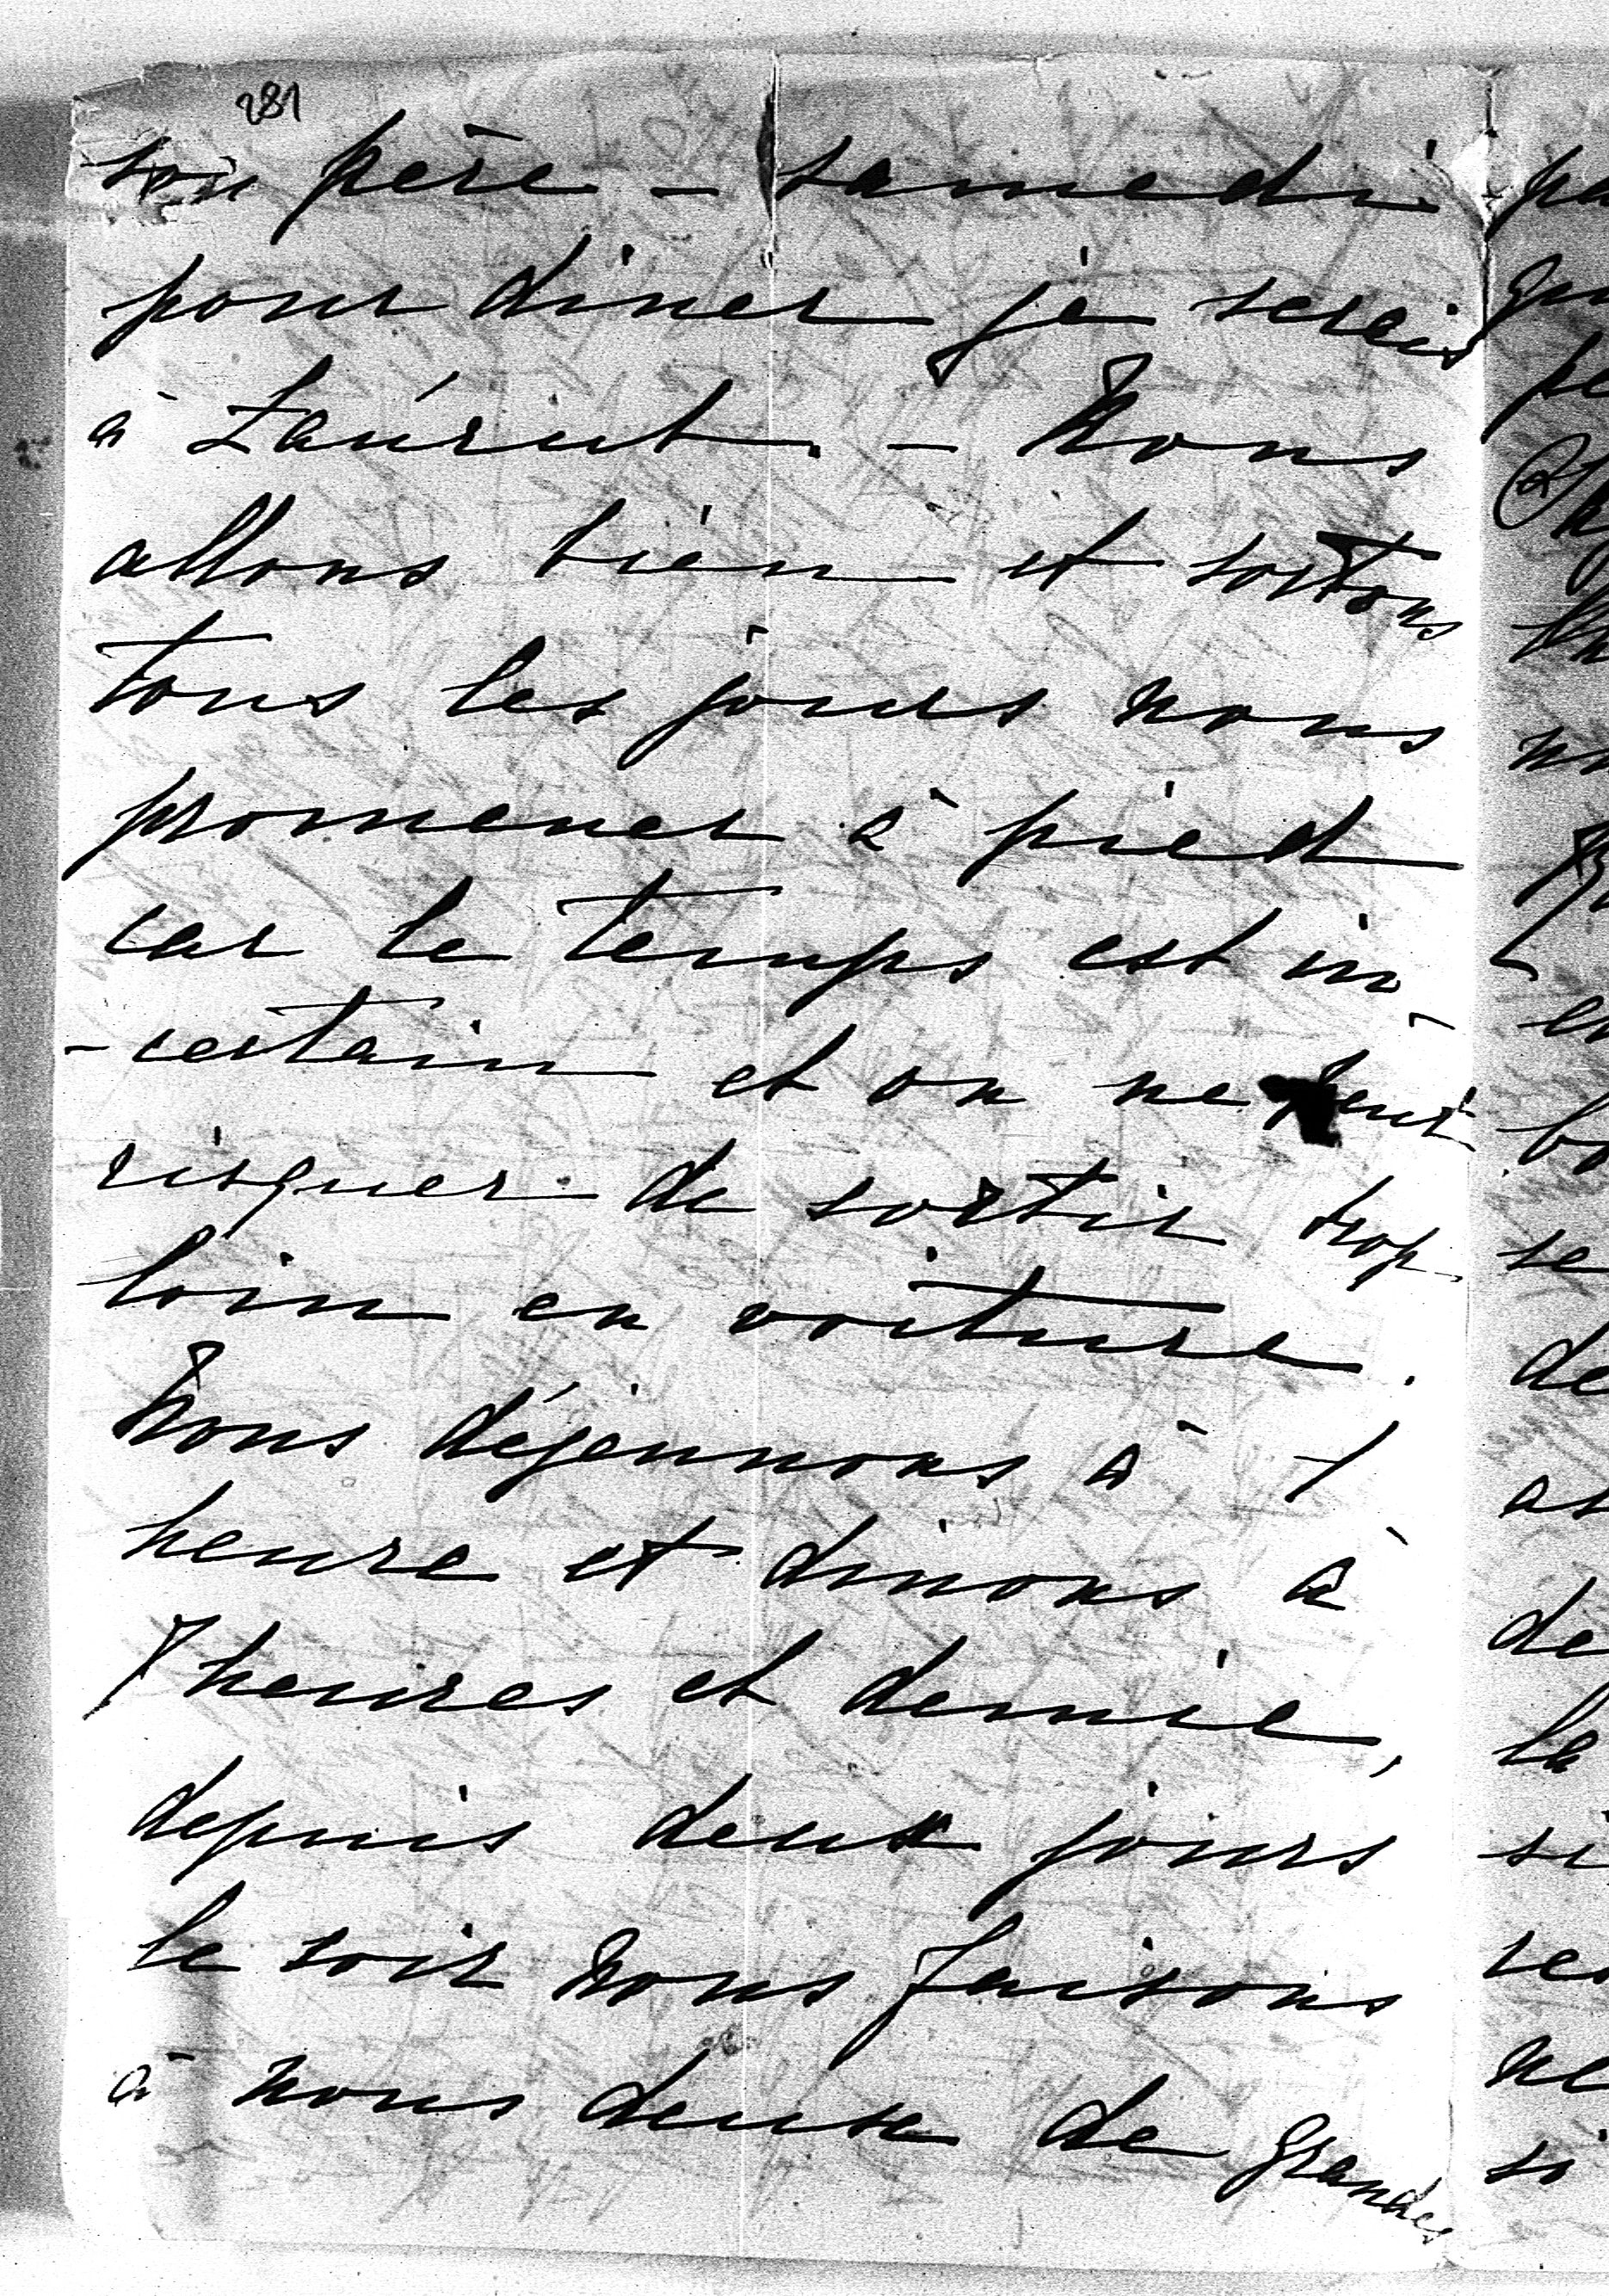 281
son père – samedi
pour diner je serais
à Zaürut. – Nous
allons bien et sortons
tous les jours nous
promener à pied
car le temps est in
-certain et on ne peut
risquer de sortir trop
loin en voiture.
Nous déjeunons à 1
heure et dinons à
7 heures et demie,
depuis deux jours
le soir nous faisons
à nous deux de grandes